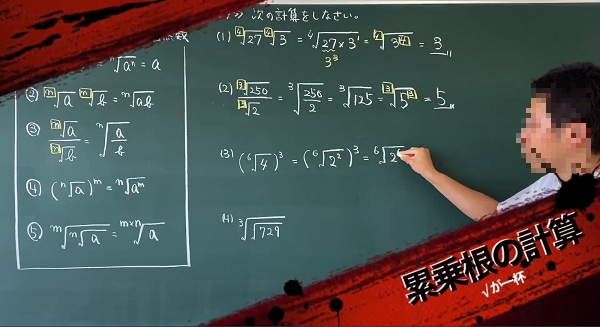 次の計算をしなさい。
ⁿ√aⁿ = a
② ⁿ√a ⁿ√b = ⁿ√ab
③ ⁿ√a / ⁿ√b = ⁿ√(a/b)
④ (ⁿ√a)ᵐ = ⁿ√aᵐ
⑤ ᵐ√ⁿ√a = ᵐˣⁿ√a
(1) ⁴√27 ⁴√3 = ⁴√27×3 = ⁴√3⁴ = 3
3³
(2) ³√250 / ³√2 = ³√(250/2) = ³√125 = ³√5³ = 5
(3) (⁶√4)³ = (⁶√2²)³ = ⁶√2⁶
(4) ³√√729
累乗根の計算
√が一杯